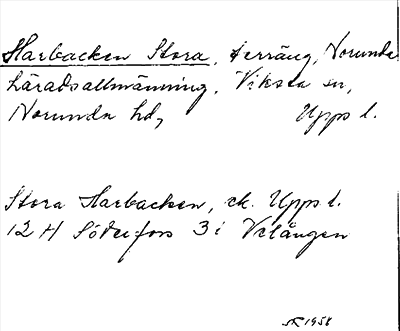 Harbacken Stora, terräng, Norunda
häradsallmänning, Viksta sn,
Norunda hd, Uppl.
Stora Harbacken, ek. Uppl.
12 H Söderfors 3 i Velången
1958